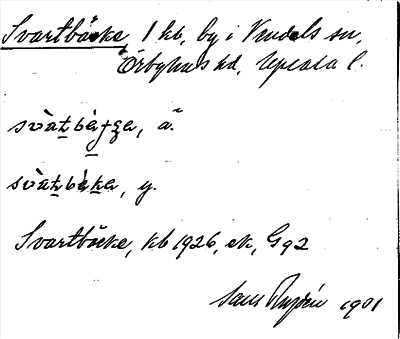 Svartbäcke 1 kb, by i Vendels sn,
Örbyhus hd, Upsala l.
svàt̲bèɟʒa, ä.
svàt̲bèk̲a, y.
Svartbäcke, kb 1926, ek, G 92
Sam 1901